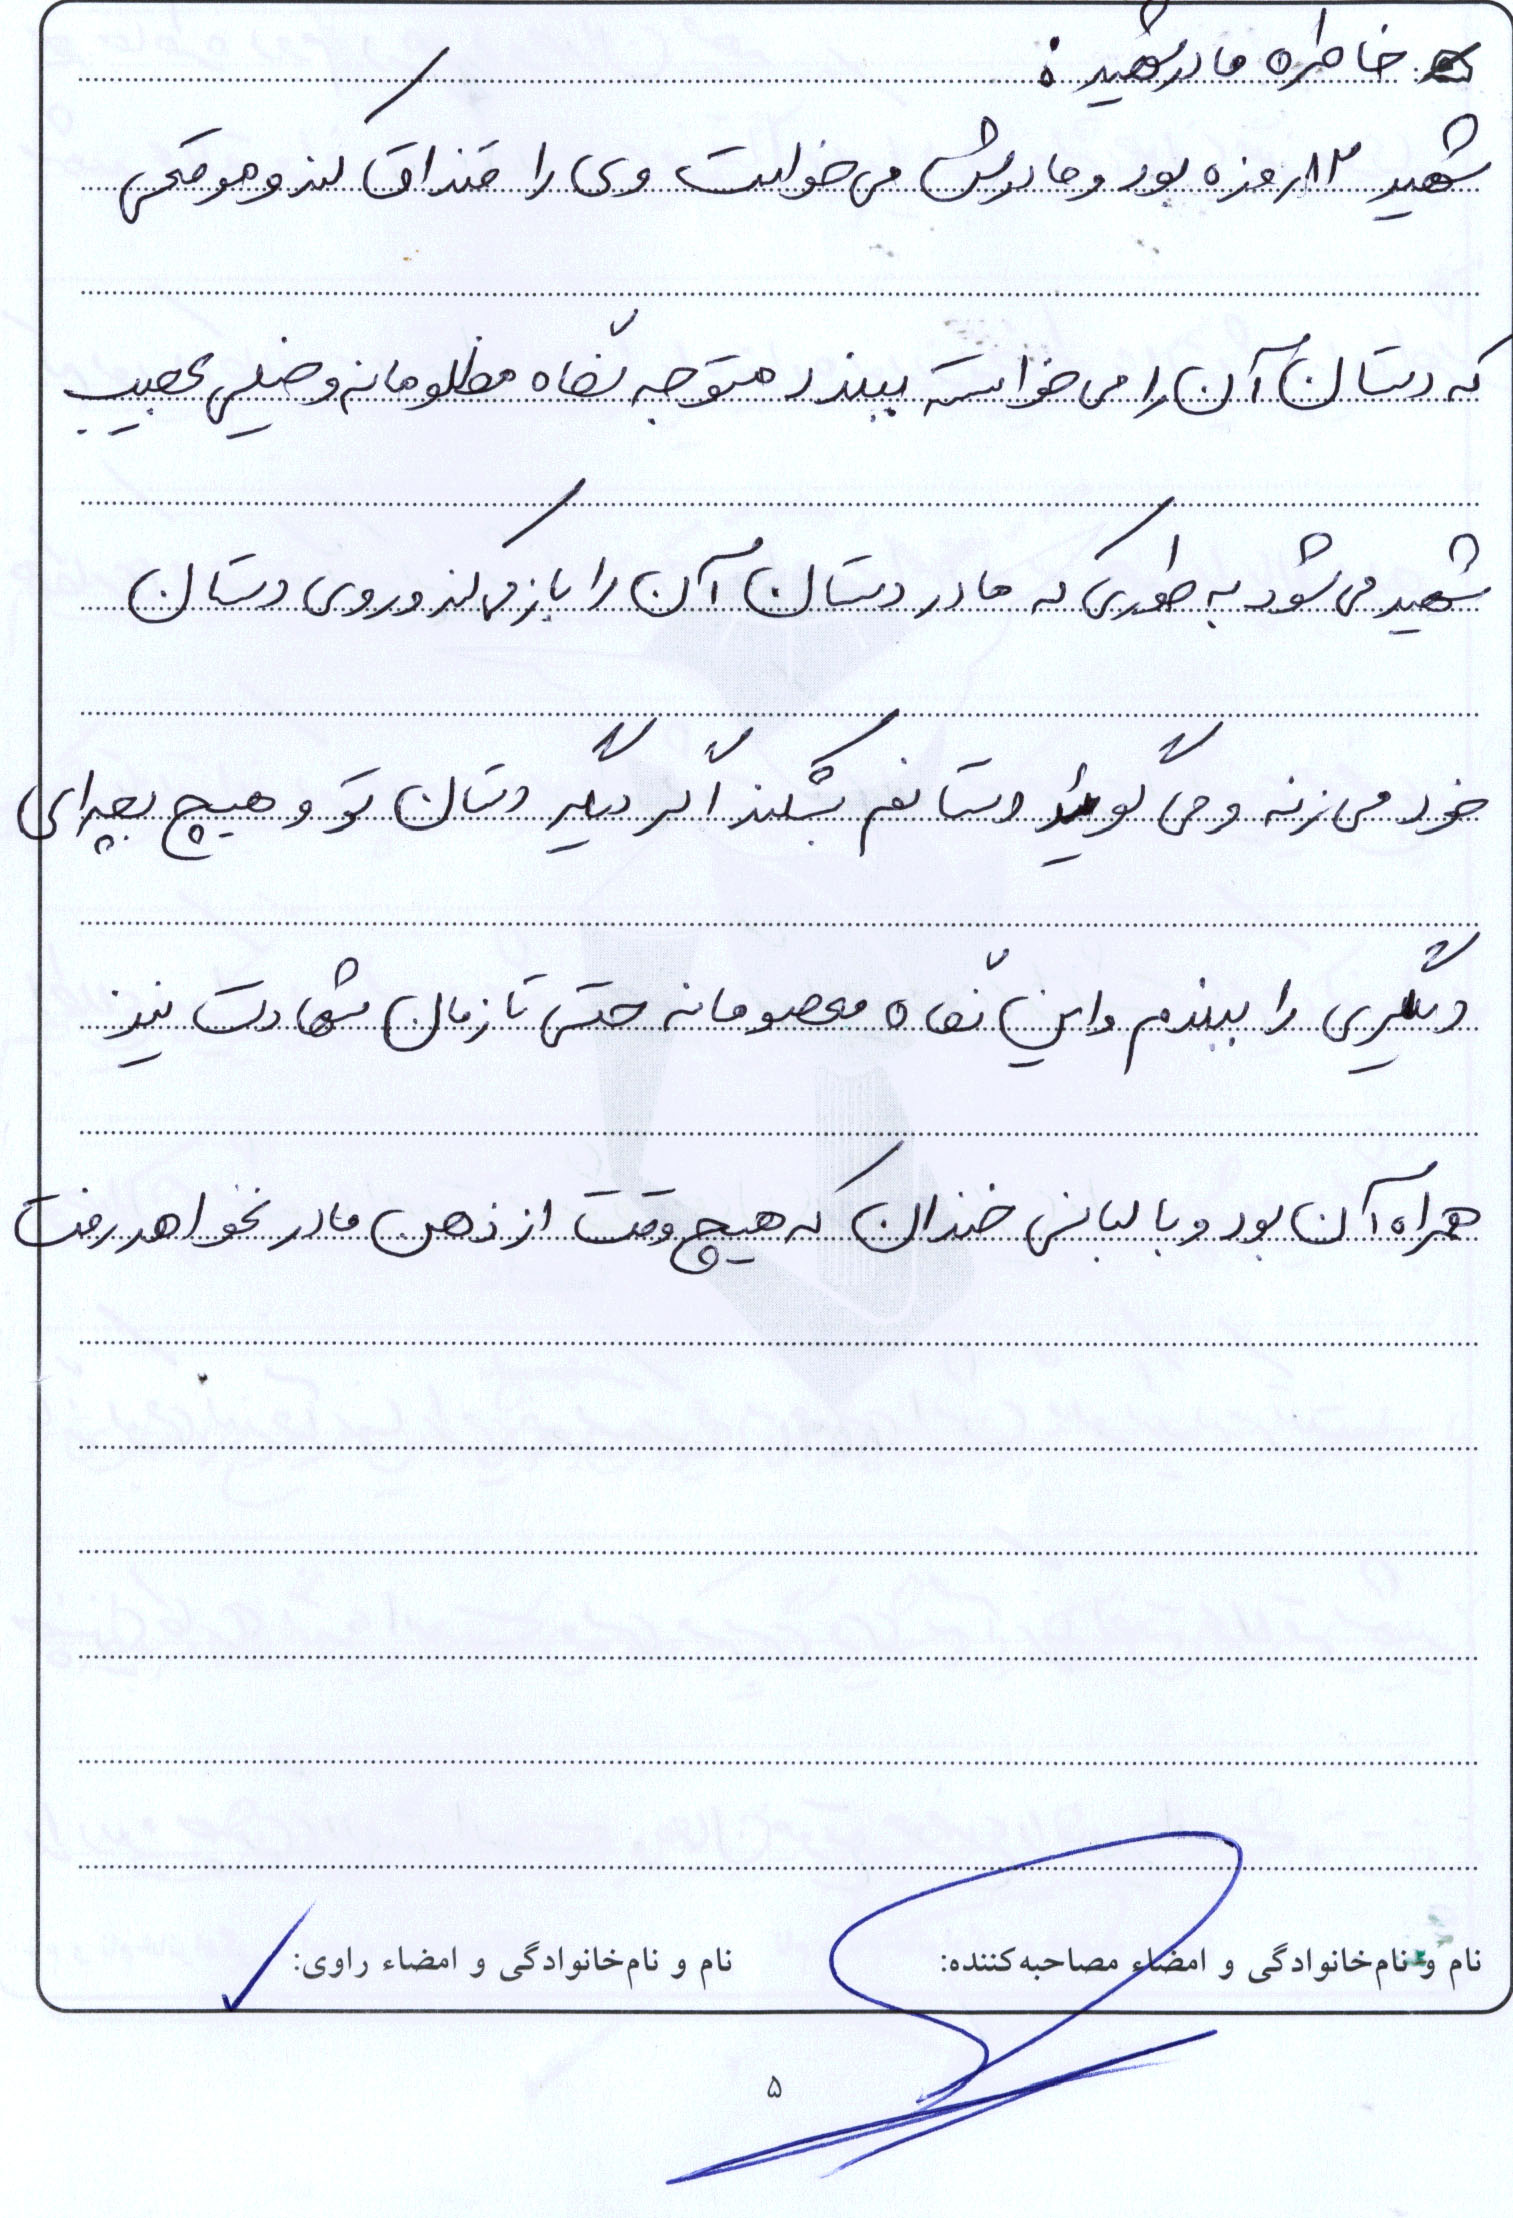 خاطره مادر شهید :
شهید ۱۳ روزه بود و مادرش می خواست وی را قنداق کند و موقعی
که دستان آن را می خواسته ببندد متوجه نگاه مظلومانه و خیلی عجیب
شهید می شود به طوری که مادر دستان آن را باز می کند و روی دستان
خود می زنه و می گوید دستانم بشکند اگر دیگر دستان تو و هیچ بچه ای
دیگری را ببندم و این نگاه معصومانه حتی تا زمان شهادت نیز
همراه آن بود و با لبانی خندان که هیچ وقت از ذهن مادر نخواهد رفت
نام و نام‌خانوادگی و امضاء مصاحبه‌کننده: نام و نام‌خانوادگی و امضاء راوی:
۵